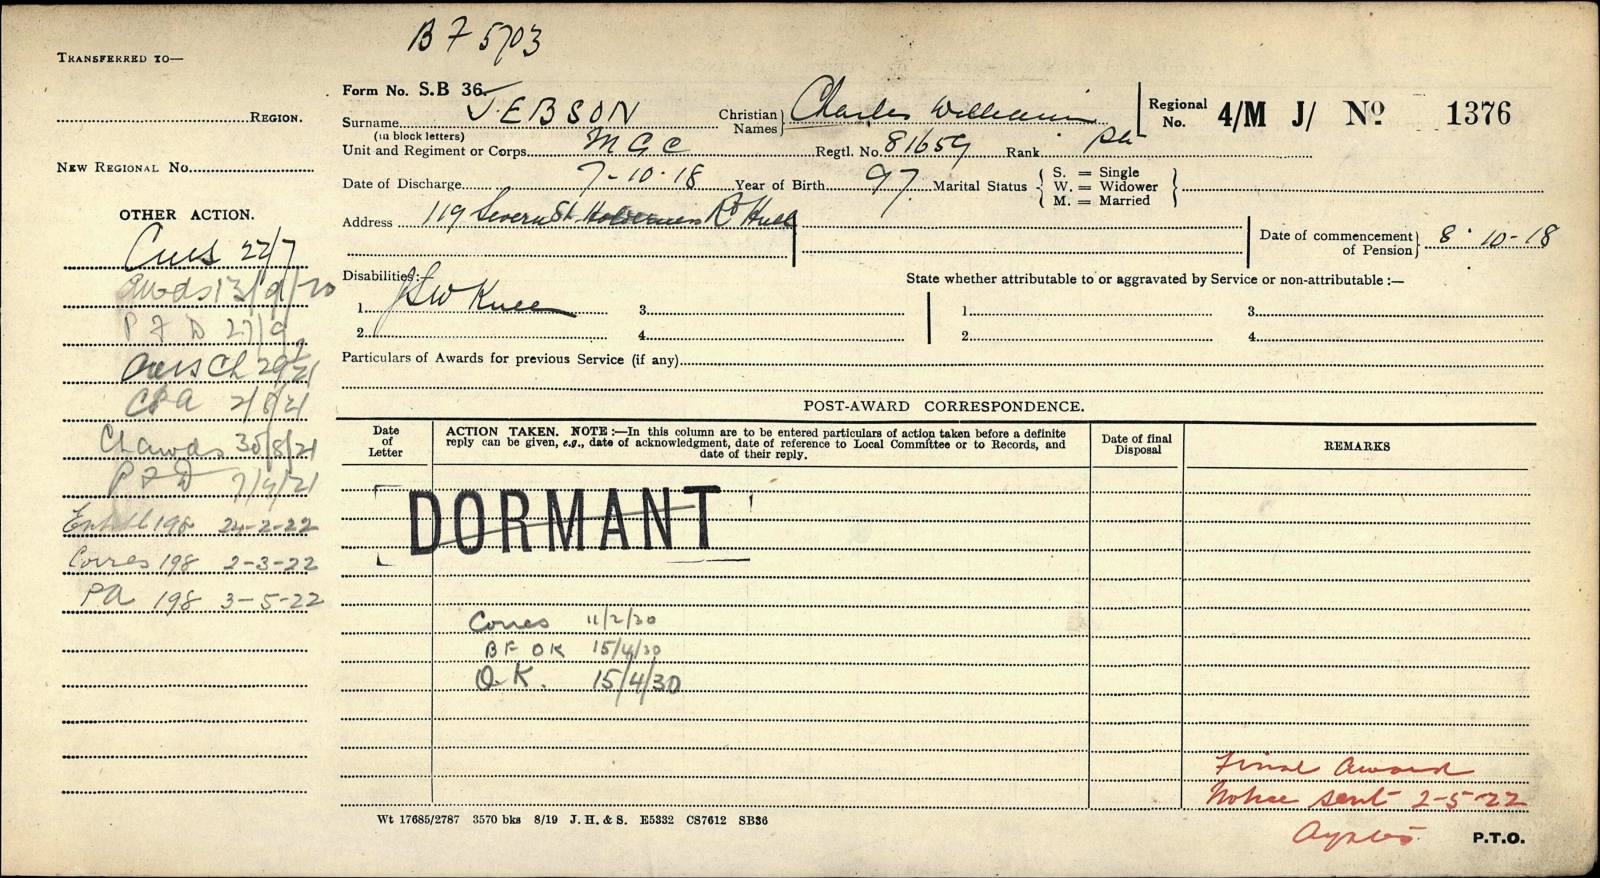 B F 5703
TRANSFERRED TO—
REGION.
NEW REGIONAL NO.
OTHER ACTION.
22/7
Awds 13/9/20
P F D 27/9
Ch 29/7/21
CPA 2/8/21
Ch Awds 30/8/21
P F D 7/9/21
198 24-2-22
Corres 198 2-3-22
PA 198 3-5-22
Form No. S.B 36.
Surname JEBSON Christian Names} Charles William
(in block letters)
Regional No. 4/M J/ No 1376
Unit and Regiment or Corps MGC Regtl. No. 81659 Rank Pte
Date of Discharge 7-10-18 Year of Birth 97 Marital Status { S. = Single W. = Widower M. = Married }
Address 119 Severn St Holderness Rd Hull
Date of commencement of Pension} 8-10-18
Disabilities:—
State whether attributable to or aggravated by Service or non-attributable :—
1. GSW Knee 3. 1. 3.
2. 4. 2. 4.
Particulars of Awards for previous Service (if any)
POST-AWARD CORRESPONDENCE.
Date of Letter
ACTION TAKEN. NOTE :—In this column are to be entered particulars of action taken before a definite
reply can be given, e.g., date of acknowledgment, date of reference to Local Committee or to Records, and
date of their reply.
Date of final Disposal
REMARKS
DORMANT
Corres 11/2/30
BF OK 15/4/30
O.K. 15/4/30
Final Award
Notice sent 2-5-22
Wt 17685/2787 3570 bks 8/19 J. H. & S. E5332 CS7612 SB36
P.T.O.